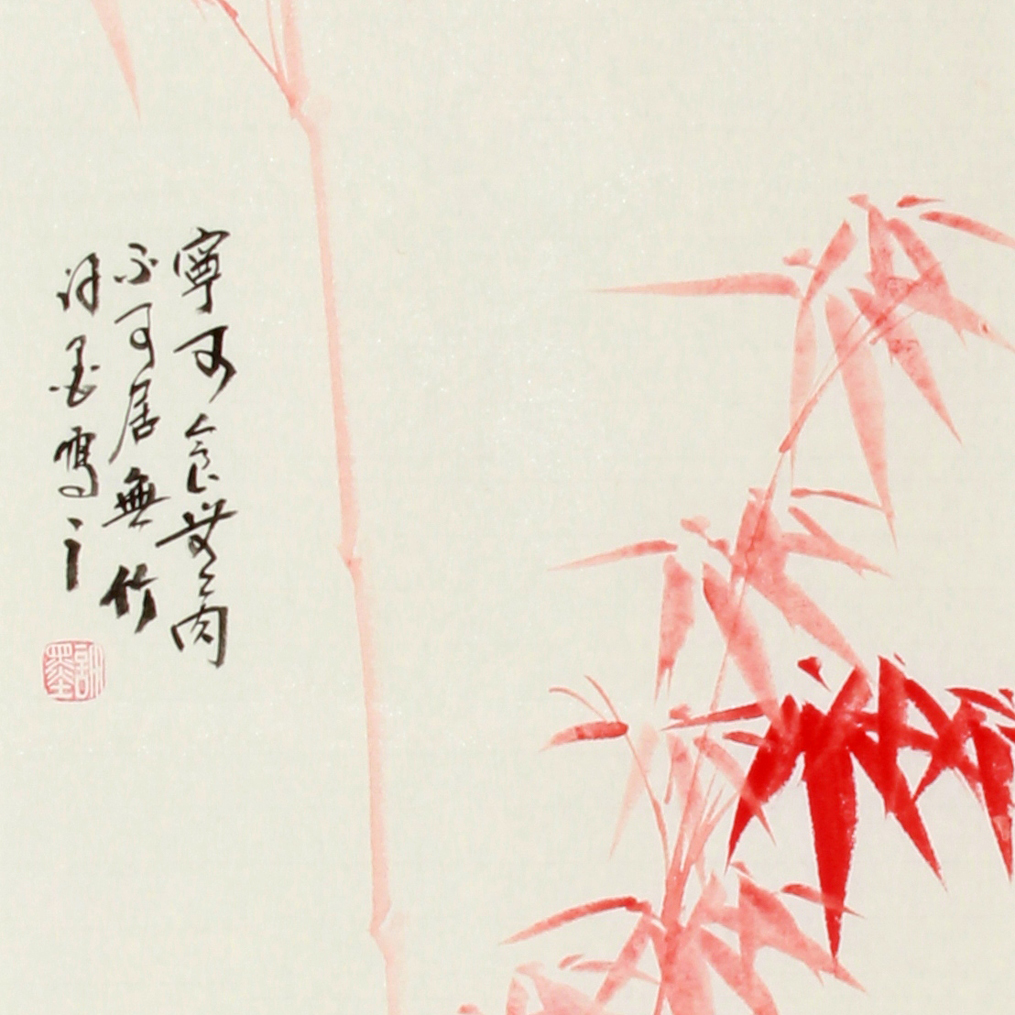 寧可食無肉
不可居無竹
許墨寫之
許墨